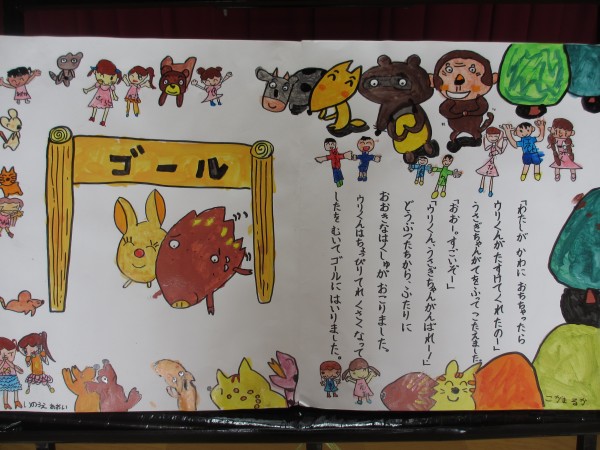 ゴール
「わたしが かわに おちちゃったら
ウリくんがたすけてくれたの―」
うさぎちゃんがてをふって こたえました。
「おおー。すごいぞー」
「ウリくん、うさぎちゃんがんばれー！」
どうぶつたちから、ふたりに
おおきなはくしゅが おこりました。
ウリくんはちょっぴりてれくさくなって
したを むいて ゴールに はいりました。
いのうえ あおい